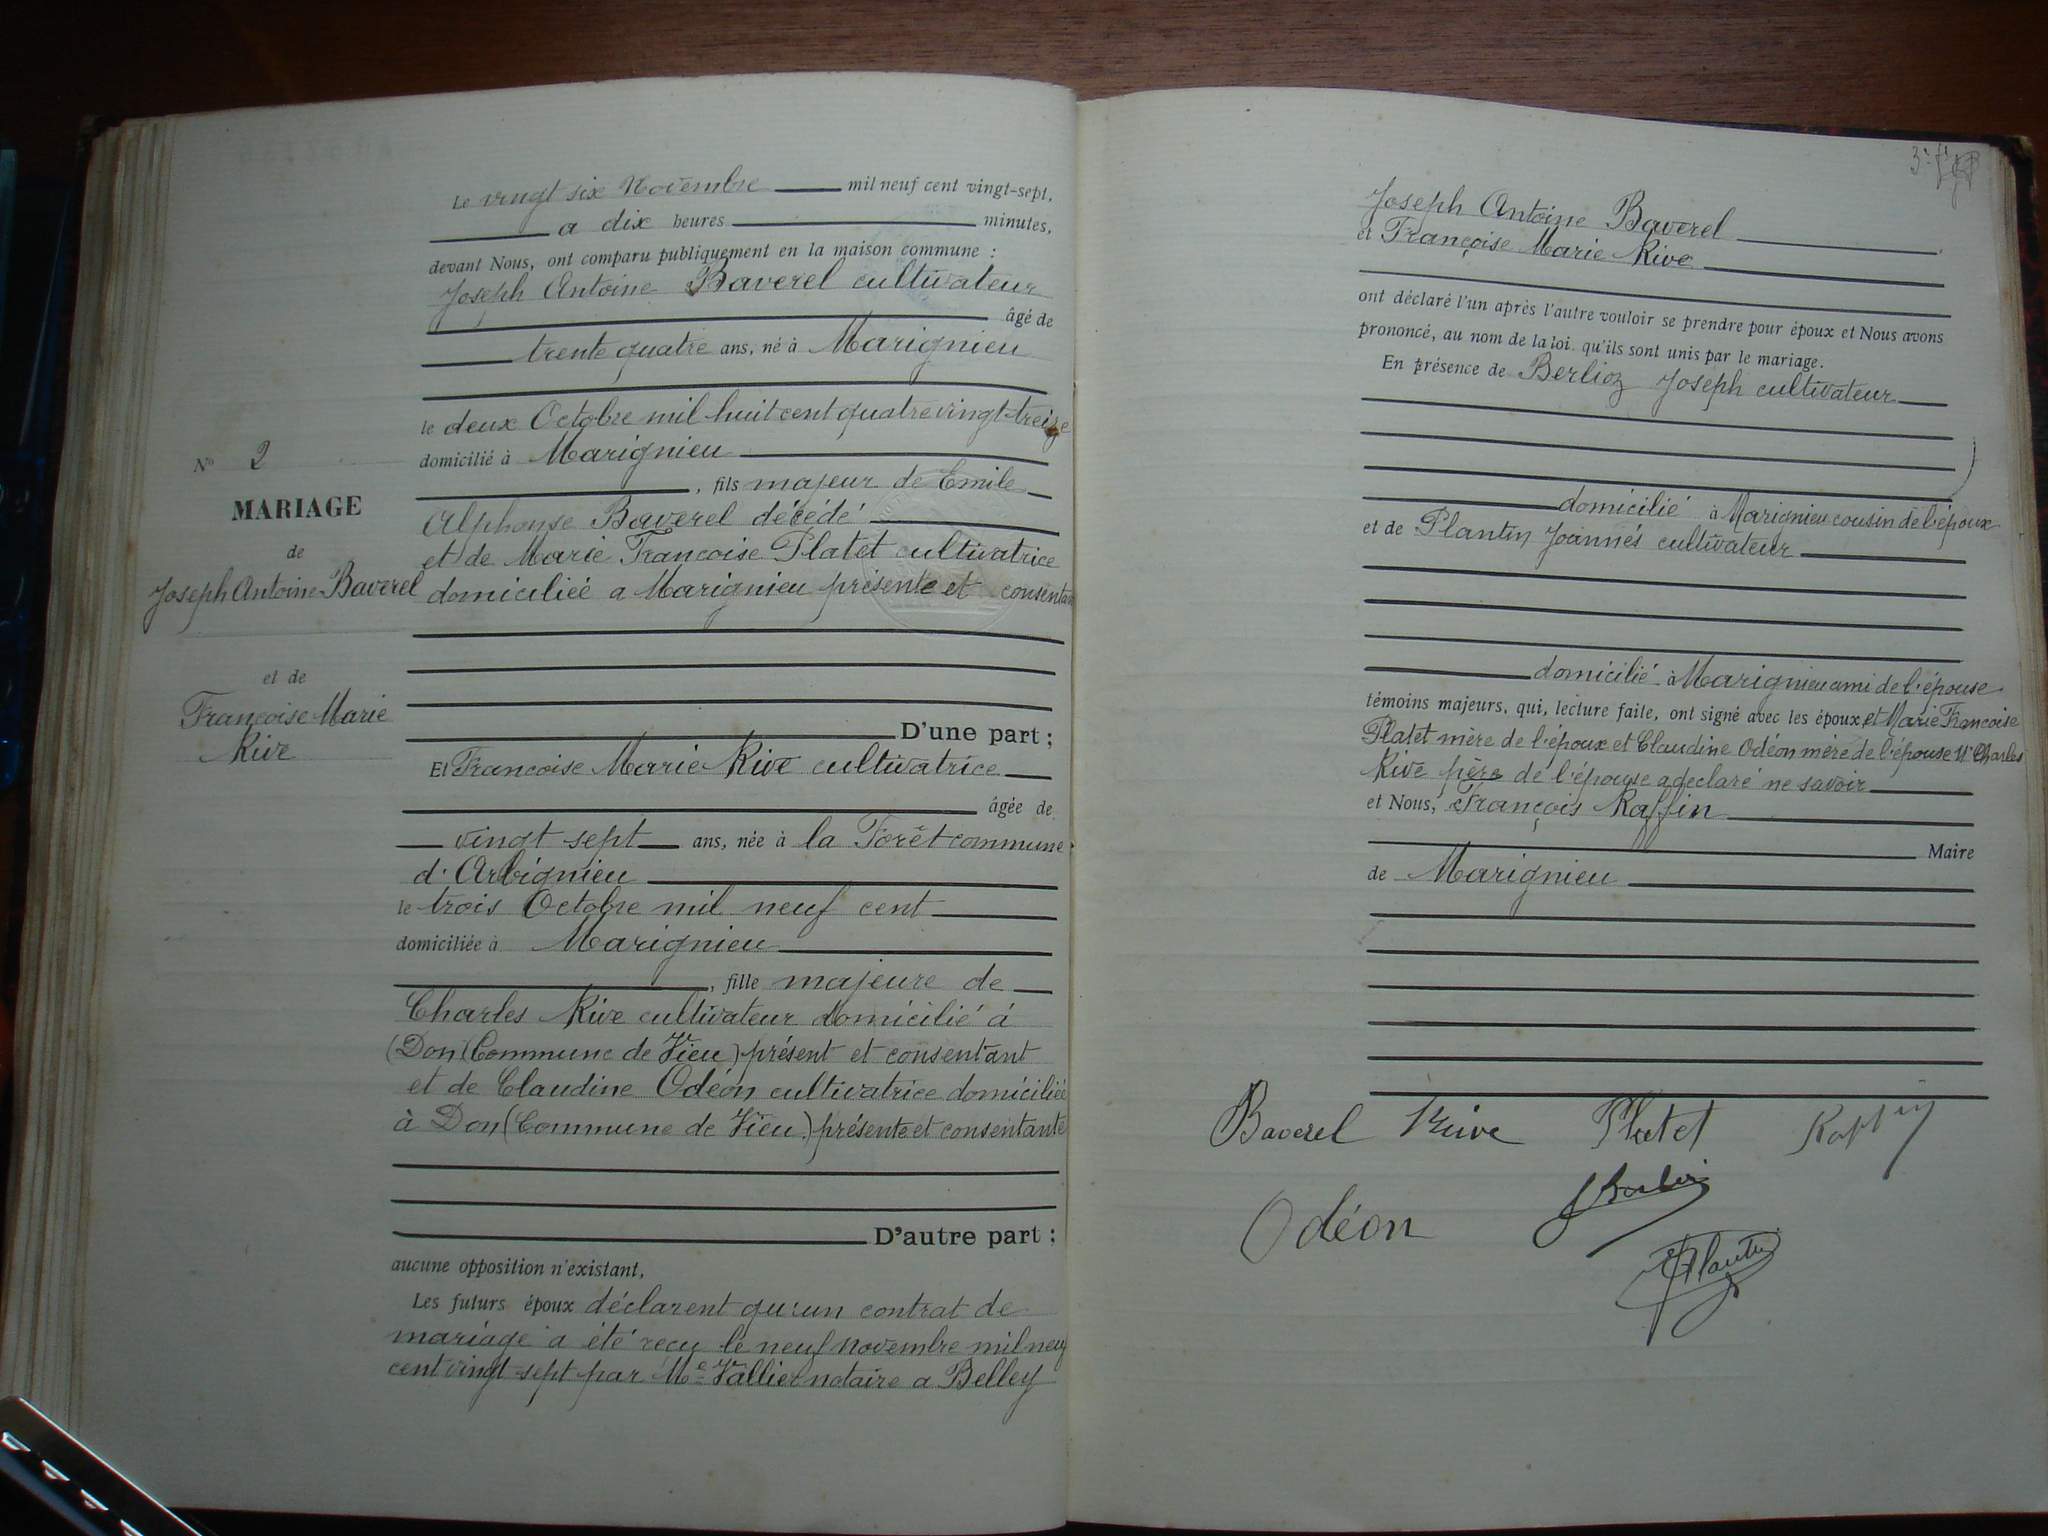 Le vingt six Novembre mil neuf cent vingt-sept,
a dix heures minutes,
devant Nous, ont comparu publiquement en la maison commune :
Joseph Antoine Baverel cultivateur
âgé de
trente quatre ans, né à Marignieu
le deux Octobre mil huit cent quatre vingt-treize
domicilié à Marignieu
, fils majeur de Emile
Alphonse Baverel décédé
et de Marie Françoise Platet cultivatrice
domiciliée a Marignieu présente et consentan
D'une part ;
Et Francoise Marie Rive cultivatrice
âgée de
vingt sept ans, née à la Forêt commune
d'Arbignieu
le trois Octobre mil neuf cent
domiciliée à Marignieu
, fille majeure de
Charles Rive cultivateur domicilié à
(Don (Commune de Vieu) présent et consentant
et de Claudine Odéon cultivatrice domiciliée
à Don (Commune de Vieu) présente et consentante
D'autre part ;
aucune opposition n'existant,
Les futurs époux déclarent qu'un contrat de
mariage a été reçu le neuf novembre mil neuf
cent vingt-sept par Me Vallier notaire a Belley
No 2
MARIAGE
de
Joseph Antoine Baverel
et de
Françoise Marie
Rive
Joseph Antoine Baverel
et Françoise Marie Rive
ont déclaré l'un après l'autre vouloir se prendre pour époux et Nous avons
prononcé, au nom de la loi. qu'ils sont unis par le mariage.
En présence de Berlioz Joseph cultivateur
domicilié à Marignieu cousin de l'époux
et de Plantin Joannés cultivateur
domicilié à Marignieu ami de l'épouse
témoins majeurs, qui, lecture faite, ont signé avec les époux et Marie Francoise
Platet mère de l'époux et Claudine Odéon mère de l'épouse Charles
Rive père de l'épouse a declaré ne savoir
et Nous, François Raffin
Maire
de Marignieu
Baverel Rive Platet Raffin
Odéon
J Berlioz
Plantin